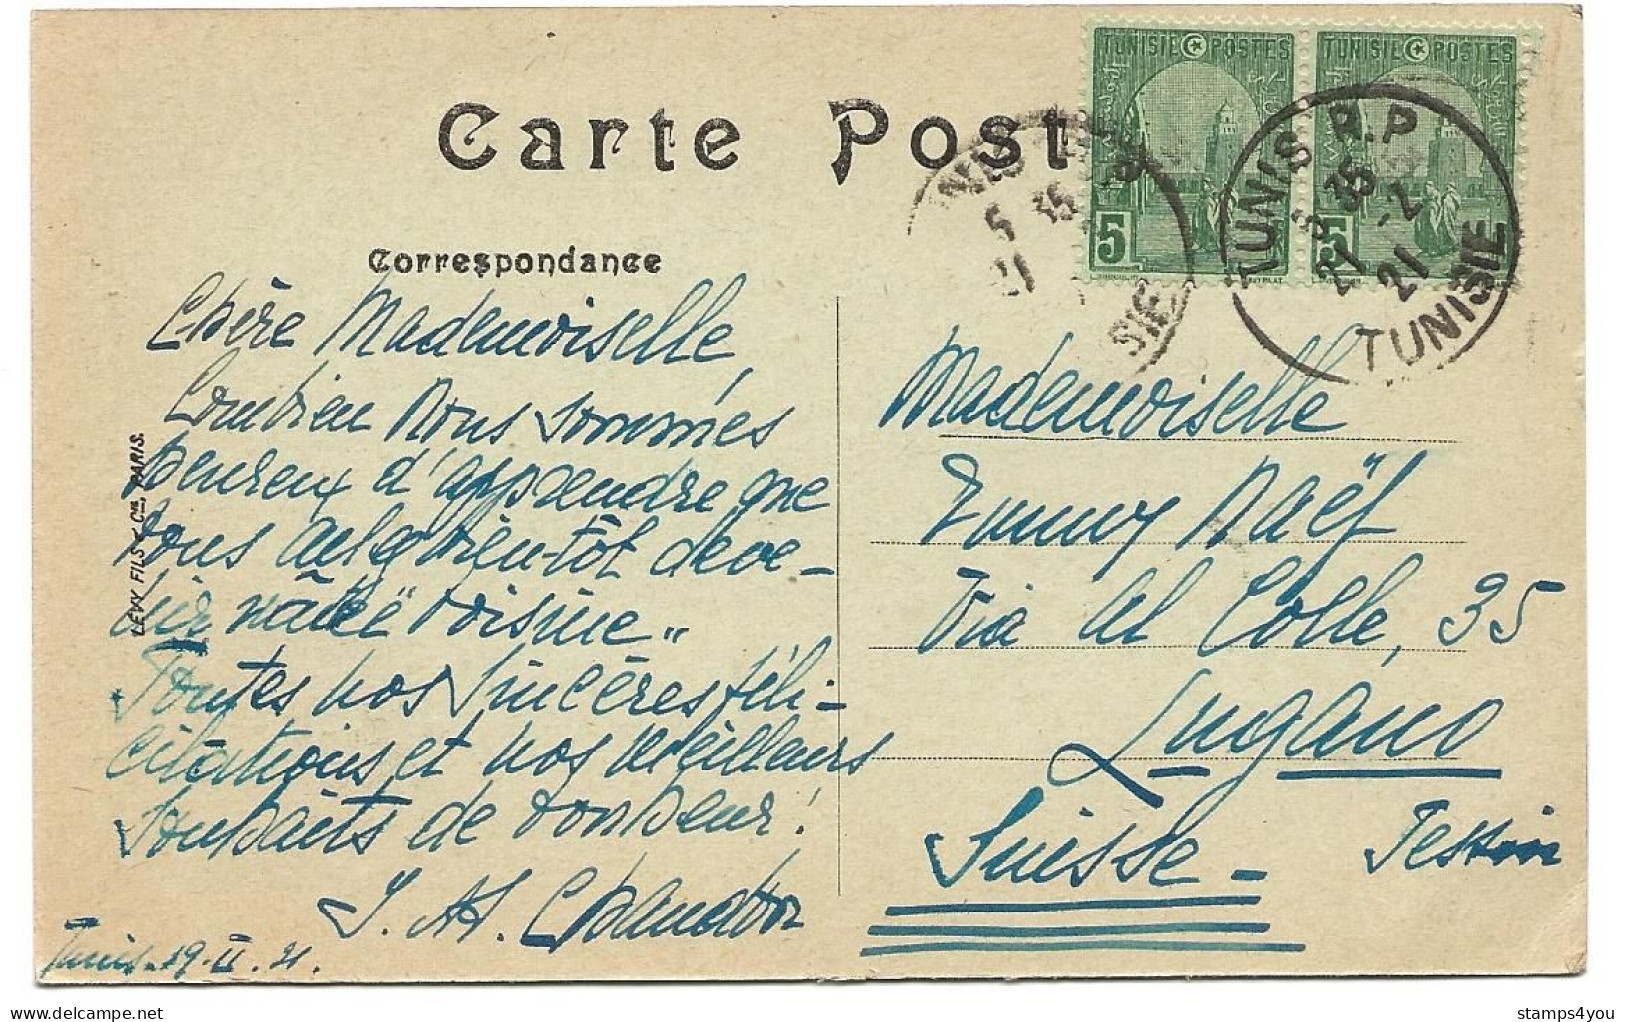 Carte Post
TUNISIE POSTES
TUNISIE POSTES
5
5
TUNIS R.P
35
21 -2 21
TUNISIE
Correspondance
LÉVY FILS & Cie, PARIS.
Chère Mademoiselle,
Combien nous sommes
heureux d'apprendre que
vous allez bientôt deve-
nir notre voisine"
Toutes nos sincères féli-
citations et nos meilleurs
souhaits de bonheur!
Tunis. 19.II.21.
Mademoiselle
Emmy Naëf
Via al Colle, 35
Lugano
Suisse - Tessin
stamps4you